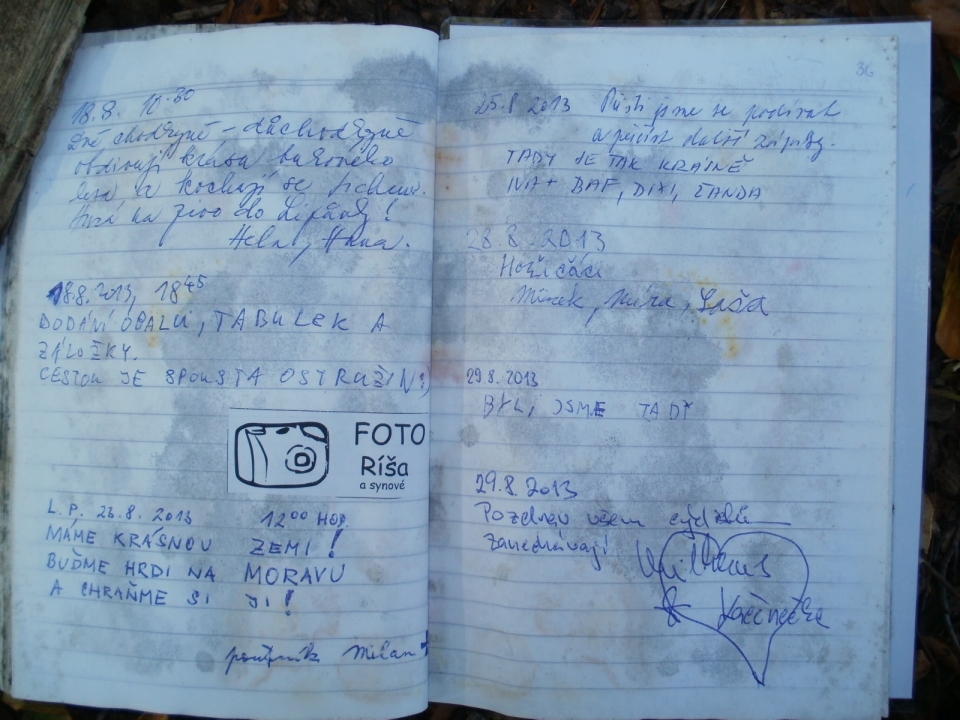 18.8. 10.30
Dvě chodkyně - důchodkyně
obdivují krásu bukového
lesa a kochají se tichem.
na pivo do Lipůvky!
Hela, Hana.
18.8. 2013, 18 45
DODÁNÍ OBALU, TABULEK A
ZÁLOŽKY.
CESTOU JE SPOUSTA OSTRUŽIN:)
FOTO
Ríša
a synové
L.P. 23.8. 2013 12 00 HOD.
MÁME KRÁSNOU ZEMI!
BUĎME HRDI NA MORAVU
A CHRAŇME SI JI!
poutník Milan
36
25.8 2013 Přišli jsme se podívat
a přečíst další zápisky.
TADY JE TAK KRÁSNĚ
IVA + BAF, DIXI, ČANDA
28.8. 2013
Hořičáci
Mirek, Míra, Saša
29.8. 2013
BYLI JSME TADY
29.8.2013
Pozdrav všem
zanechávají
&